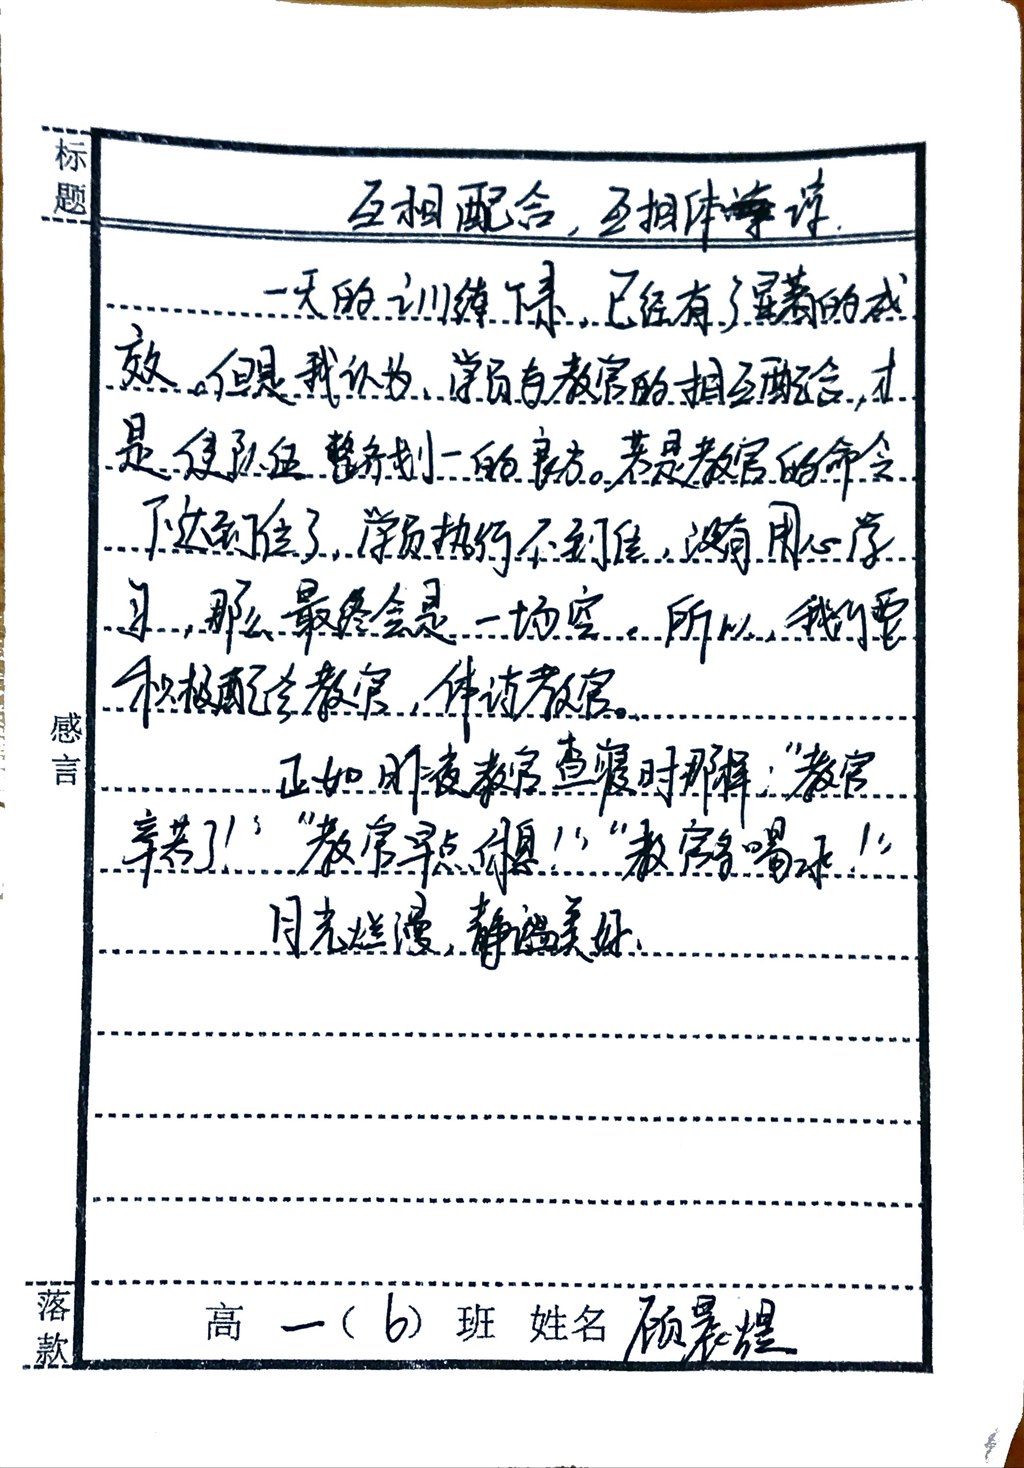 标题
互相配合，互相体谅.
一天的训练下来，已经有了显著的成
效。但是我认为，学员与教官的相互配合，才
是使队伍整齐划一的良方。若是教官的命令
下达到位了，学员执行不到位，没有用心学
习，那么最终会是一场空。所以，我们要
积极配合教官，体谅教官。
感言
正如昨夜教官查寝时那样：“教官
辛苦了！”“教官早点休息！”“教官多喝水！”
月光烂漫，静谧美好.
落款
高一（6）班 姓名 顾晨煜